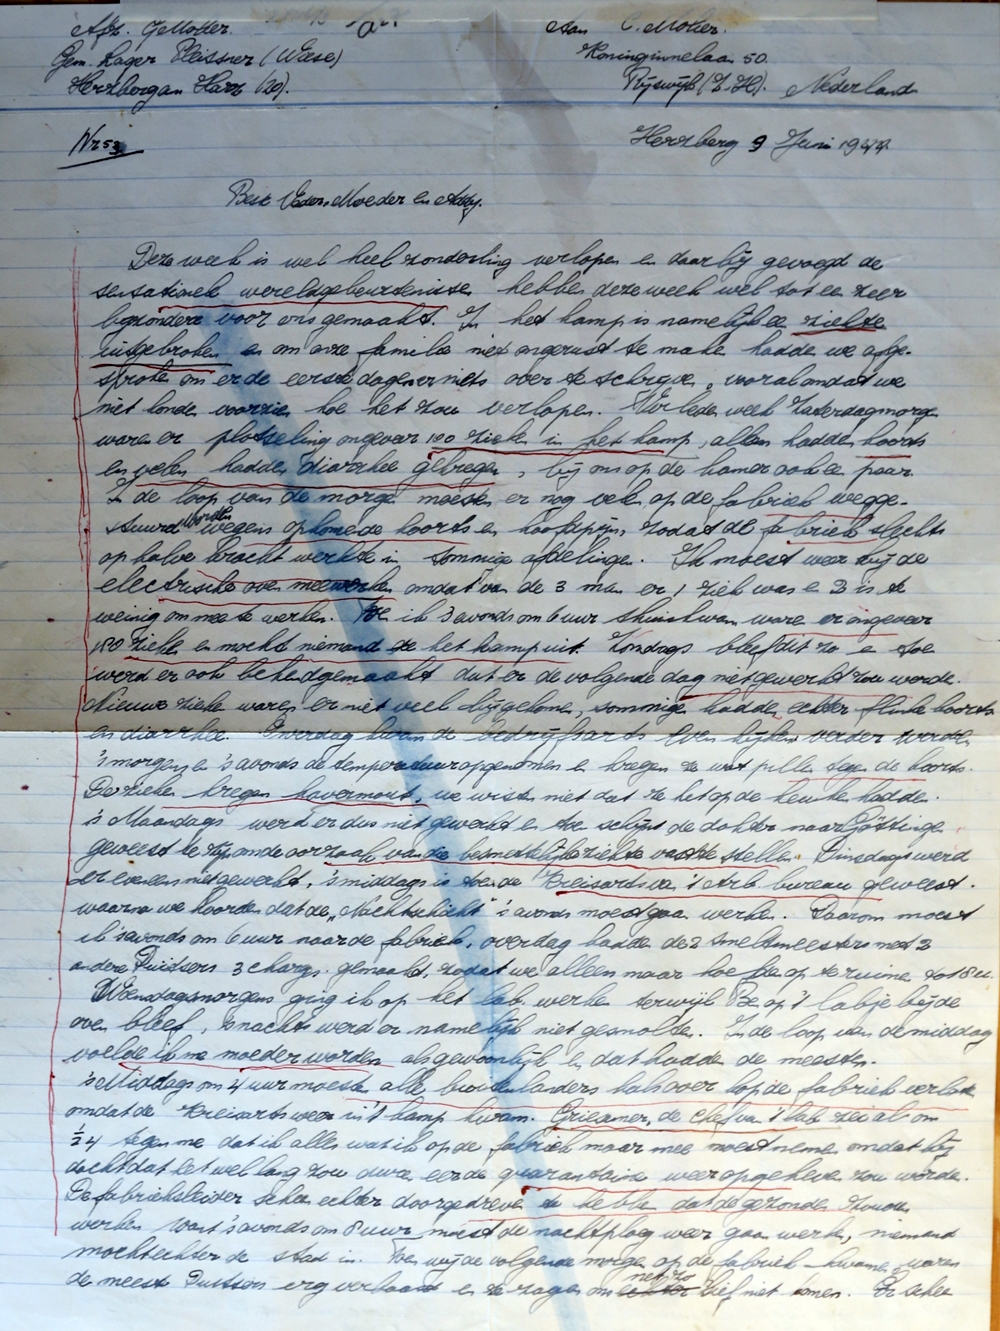 Afz. G. Motter.
Gem. Lager Pleissner (Wiese)
Herzberg am Harz (20).
Aan C. Motter.
Koninginnelaan 50.
Rijswijk (Z-H). Nederland
Nr 53
Herzberg 9 Juni 1944
Beste Vader, Moeder en Addy.
Deze week is wel heel zonderling verlopen en daarbij gevoegd de
sensationele wereldgebeurtenissen hebben deze week wel tot een zeer
bijzondere voor ons gemaakt. In het kamp is namelijk een ziekte
uitgebroken en om onze familie niet ongerust te maken hadden we afge-
sproken om er de eerste dagen niets over te schrijven, vooral omdat we
niet konden voorzien hoe het zou verlopen. Verleden week Zaterdagmorgen
waren er plotseling ongeveer 100 zieken in het kamp, allen hadden koorts
en velen hadden diarrhee gekregen, bij ons op de kamer ook een paar
In de loop van de morgen moesten er nog velen op de fabriek wegge-
stuurd worden wegens opkomende koorts en hoofdpijn zodat de fabriek slechts
op halve kracht werkte in sommige afdelingen. Ik moest weer bij de
electrische oven meewerken omdat van de 3 man er 1 ziek was en 2 is te
weinig om mee te werken. Toen ik 's avonds om 6 uur thuiskwam waren er ongeveer
180 zieken en mocht niemand de het kamp uit. Zondags bleef dit zo en toen
werd er ook bekendgemaakt dat er de volgende dag niet gewerkt zou worden.
Nieuwe zieken waren er niet veel bijgekomen, sommigen hadden echter flinke koorts
en diarrhee. Overdag kwam de bedrijfsarts even kijken verder werden
's morgens en 's avonds de temperatuur opgenomen en kregen ze wat pillen tegen de koorts.
De zieken kregen havermout, we wisten niet dat ze het op de keuken hadden.
's Maandags werd er dus niet gewerkt en toen schijnt de dokter naar Göttingen
geweest te zijn om de oorzaak van die besmettelijke ziekte vast te stellen. Dinsdags werd
er eveneens niet gewerkt, 's middags is toen de Kreisarts van 't Arb. bureau geweest.
waarna we hoorden dat de "Nachtschicht" 's avonds moest gaan werken. Daarom moest
ik 's avonds om 6 uur naar de fabriek, overdag hadden de 2 smeltmeesters met 3
andere Duitsers 3 charges gemaakt, zodat we alleen maar hoefden op te ruimen tot 8 u.
Woensdagsmorgens ging ik op het lab. werken terwijl Be op 't labje bij de
oven bleef, 's nachts werd er namelijk niet gesmolten. In de loop van de middag
voelde ik me moeder worden als gewoonlijk en dat hadden de meesten.
's Middags om 4 uur moesten alle buitenlanders hals over kop de fabriek verlaten
omdat de Kreisarts weer in 't kamp kwam. Griesmer, de chef van 't lab zei al om
½ 4 tegen me dat ik alles wat ik op de fabriek maar mee moest nemen omdat hij
dacht dat het wel lang zou duren eer de quarantaine weer opgeheven zou worden.
De fabrieksleider scheen echter doorgedreven te hebben dat de gezonden zouden
werken want 's avonds om 8 uur moest de nachtploeg weer gaan werken, niemand
mocht echter de stad in. Toen wij de volgende morgen op de fabriek kwamen waren
de meeste Duitsers erg verbaasd en ze zagen ons net zo lief niet komen. Er scheen